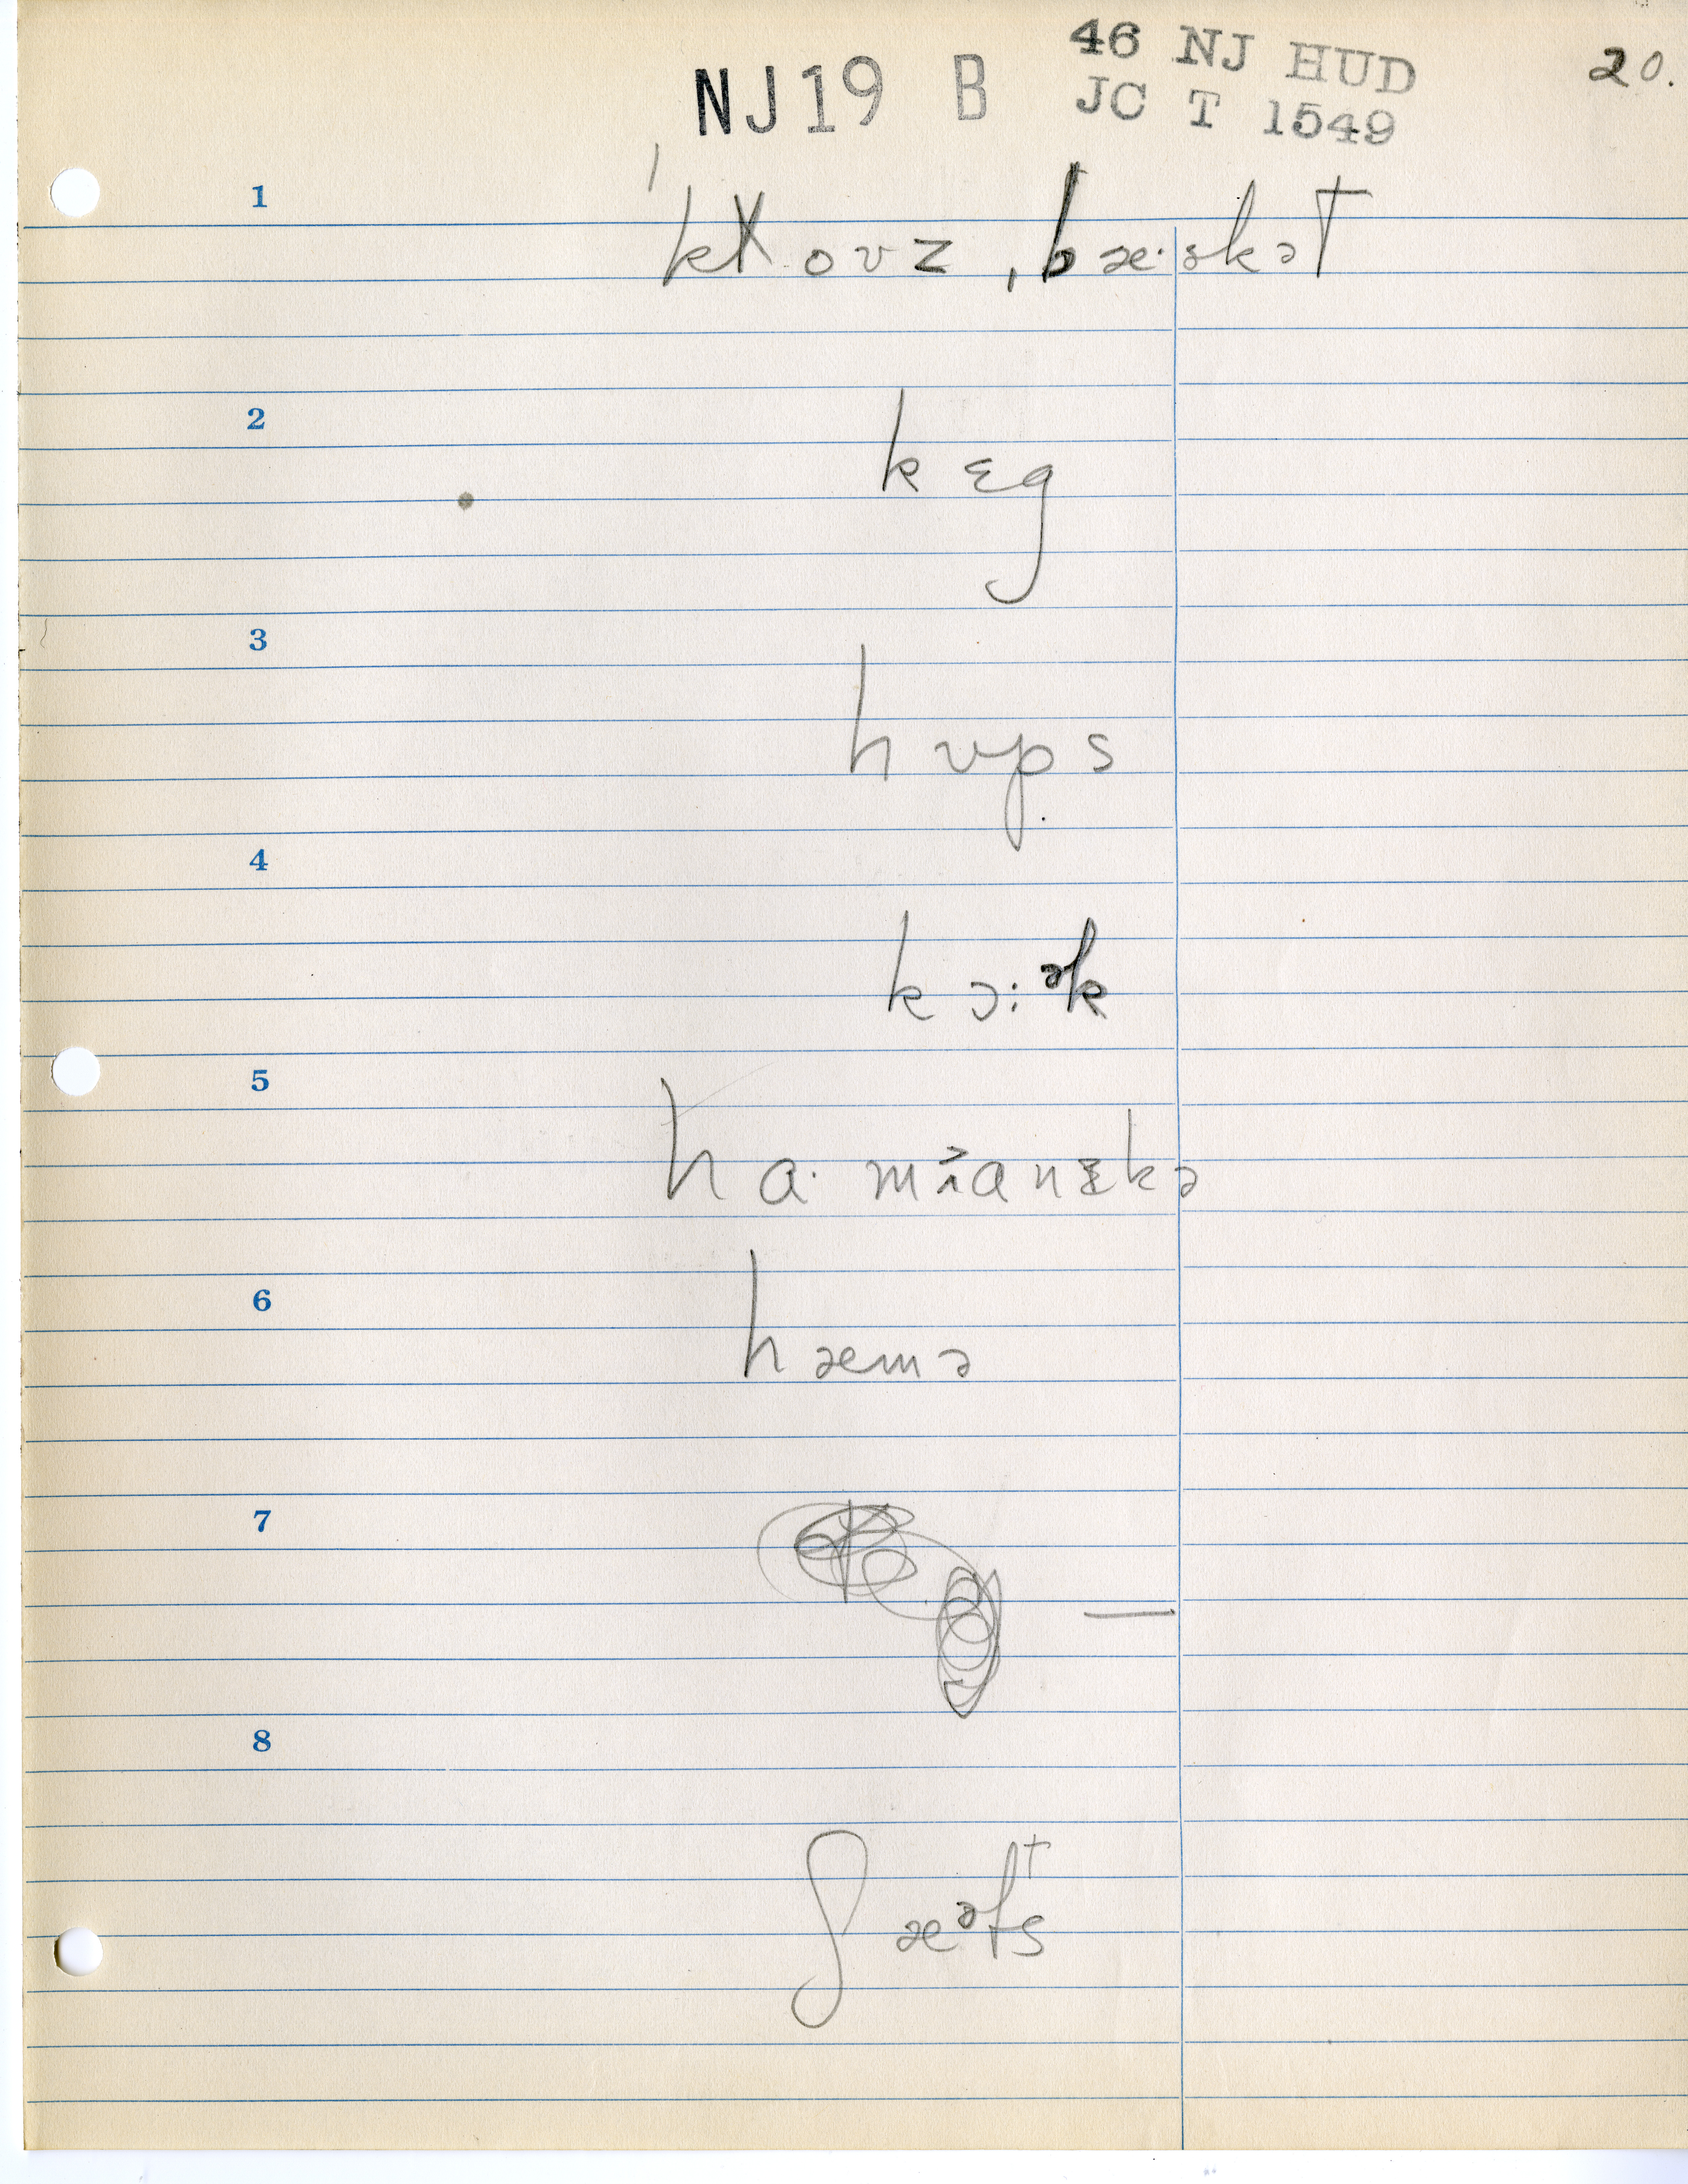 46 NJ HUD
NJ19 B JC T 1549
20.
1
ˈkɫovz ˌbæ·skət
2
kɛg
3
hʊps
4
kɔ:ᵊk
5
ha·
6
hæmə
7
—
8
ʃæᵊfts